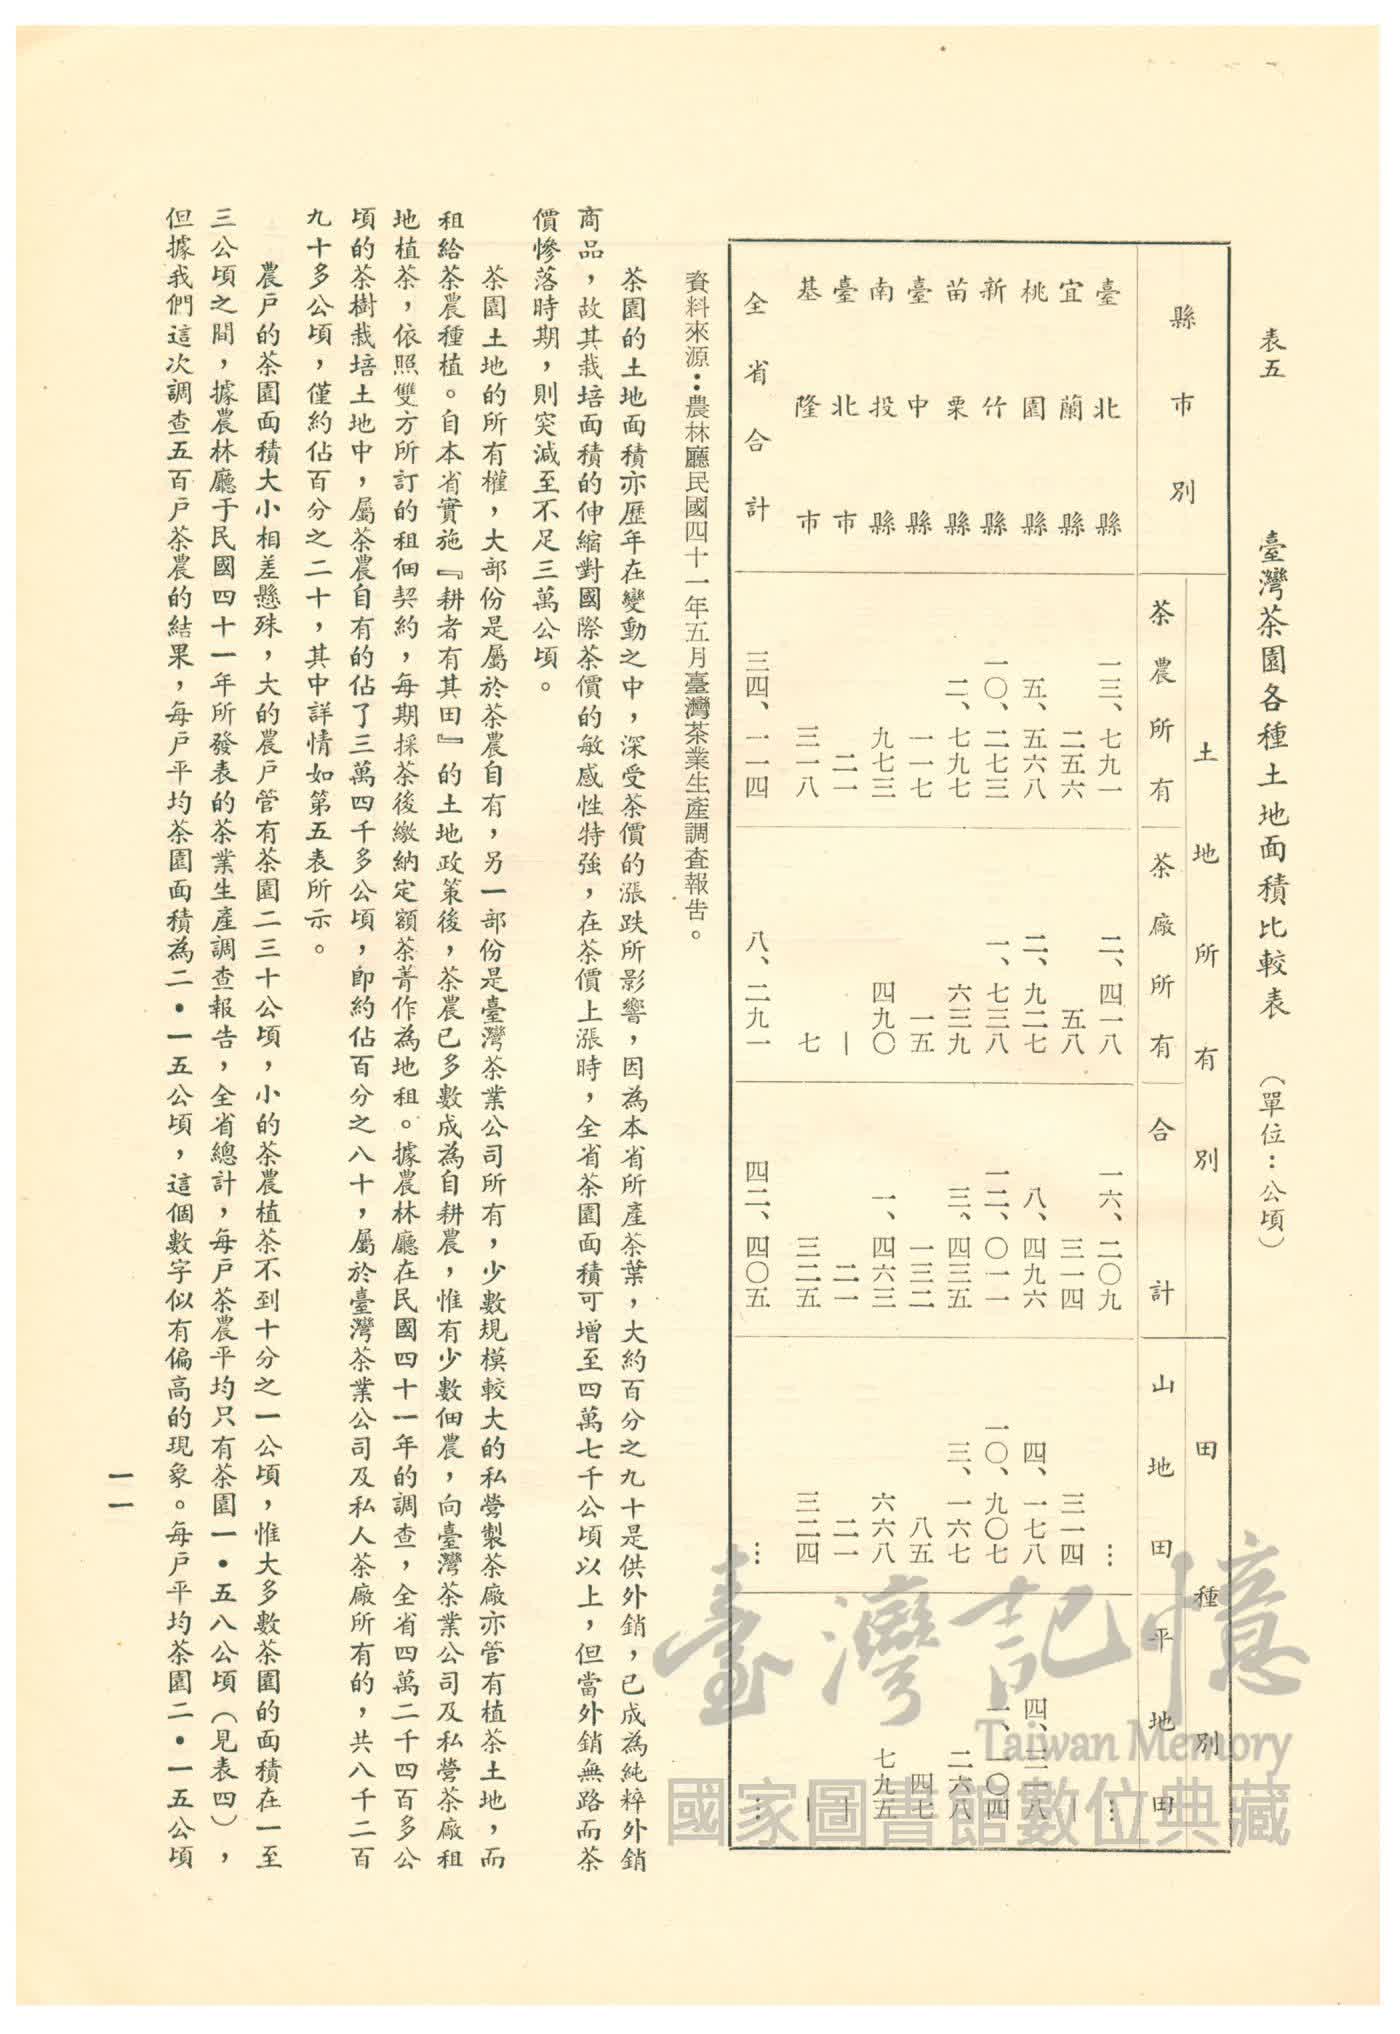 表五　臺灣茶園各種土地面積比較表　（單位：公頃）
縣市別　土地所有別　田種別
茶農所有　茶廠所有　合計　山地田　平地田
臺北縣　一三、七九一　二、四一八　一六、二〇九　…　…
宜蘭縣　二五六　五八　三一四　三一四　—
桃園縣　五、五六八　二、九二七　八、四九六　四、一七八　四、三一八
新竹縣　一〇、二七三　一、七三八　一二、〇一一　一〇、九〇七　一、一〇四
苗栗縣　二、七九七　六三九　三、四三五　三、一六七　二六八
臺中縣　一一七　一五　一三二　八五　四七
南投縣　九七三　四九〇　一、四六三　六六八　七九五
臺北市　二一　—　二一　二一　—
基隆市　三一八　七　三二五　三二四　—
全省合計　三四、一一四　八、二九一　四二、四〇五　…　…
資料來源：農林廳民國四十一年五月臺灣茶業生產調查報告。
茶園的土地面積亦歷年在變動之中，深受茶價的漲跌所影響，因為本省所產茶葉，大約百分之九十是供外銷，已成為純粹外銷
商品，故其栽培面積的伸縮對國際茶價的敏感性特強，在茶價上漲時，全省茶園面積可增至四萬七千公頃以上，但當外銷無路而茶
價慘落時期，則突減至不足三萬公頃。
茶園土地的所有權，大部份是屬於茶農自有，另一部份是臺灣茶業公司所有，少數規模較大的私營製茶廠亦管有植茶土地，而
租給茶農種植。自本省實施『耕者有其田』的土地政策後，茶農已多數成為自耕農，惟有少數佃農，向臺灣茶業公司及私營茶廠租
地植茶，依照雙方所訂的租佃契約，每期採茶後繳納定額茶菁作為地租。據農林廳在民國四十一年的調查，全省四萬二千四百多公
頃的茶樹栽培土地中，屬茶農自有的佔了三萬四千多公頃，即約佔百分之八十，屬於臺灣茶業公司及私人茶廠所有的，共八千二百
九十多公頃，僅約佔百分之二十，其中詳情如第五表所示。
農戶的茶園面積大小相差懸殊，大的農戶管有茶園二三十公頃，小的茶農植茶不到十分之一公頃，惟大多數茶園的面積在一至
三公頃之間，據農林廳于民國四十一年所發表的茶業生產調查報告，全省總計，每戶茶農平均只有茶園一•五八公頃（見表四），
但據我們這次調查五百戶茶農的結果，每戶平均茶園面積為二•一五公頃，這個數字似有偏高的現象。每戶平均茶園二•一五公頃
一一
臺灣記憶
Taiwan Memory
國家圖書館數位典藏